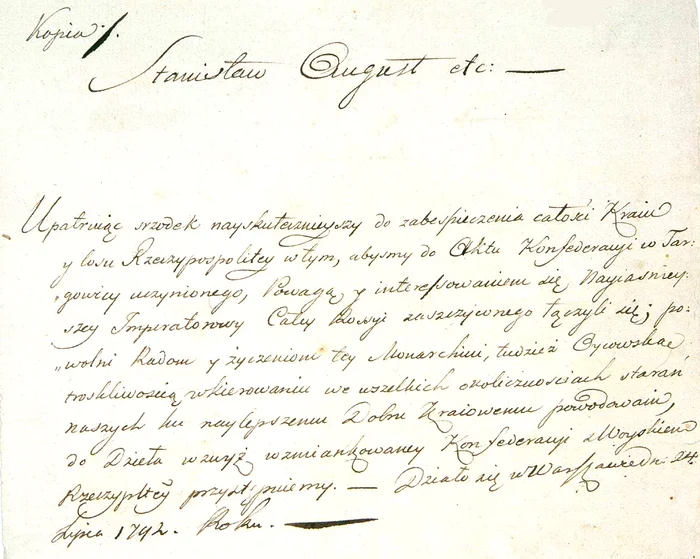 Kopia ·/.
Stanisław August etc: —
Upatruiąc srzodek nayskutecznieyszy do zabespieczenia całości Kraiu
y losu Rzeczypospolitey w tym, abysmy do Aktu Konfederacyi w Tar:
„gowicy uczynionego, Powagą y interessowaniem się Nayiasniey:
szey Imperatorowy Całey Rossyi zaszczyconego łączyli się; po:
„wolni Radom y życzeniom tey Monarchini, tudzież Oycowską
troskliwością w kierowaniu we wszelkich okolicznościach starań
naszych ku naylepszemu Dobru Kraiowemu powodowani,
do Dzieła wzwyż wzmiankowaney Konfederacyi z Woyskiem
Rzeczyptey przystępuiemy. — Działo się w Warszawie dn: 24
Lipca 1792. Roku. —